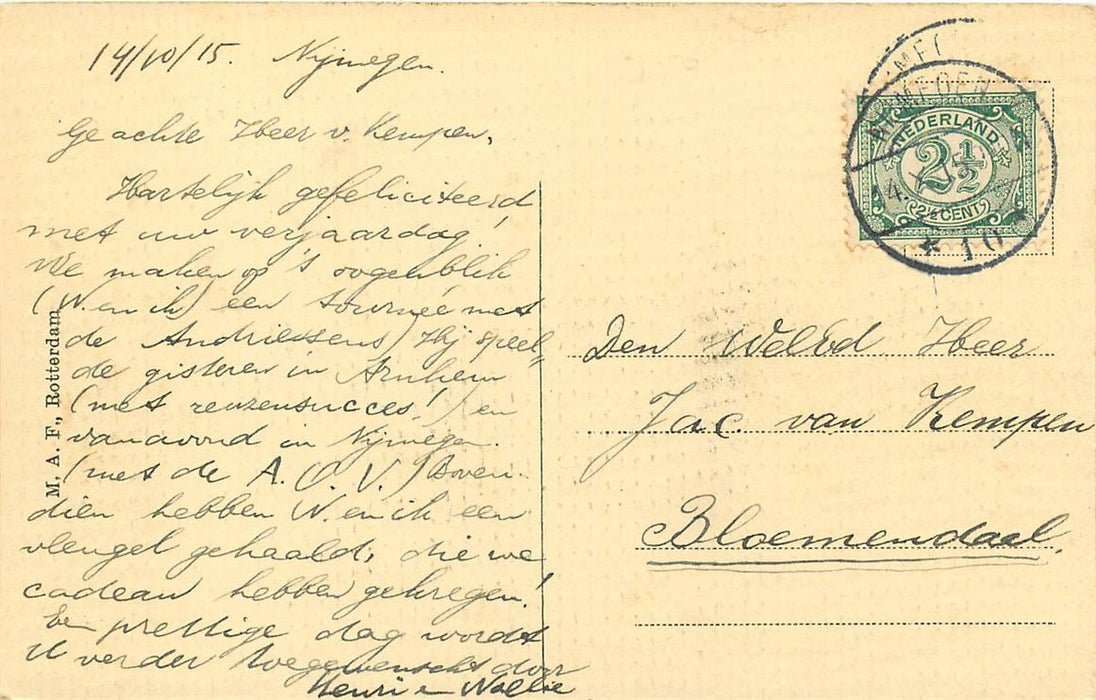 14/10/15. Nijmegen.
Geachte Heer v. Kempen,
Hartelijk gefeliciteerd
met uw verjaardag!
We maken op 's oogenblik
(W. en ik) een tournée met
de Andriessens) Hij speel„
de gisteren in Arnhem
(met reuzensucces!) en
vanavond in Nijmegen.
(met de A. O. V.) Boven-
dien hebben W. en ik een
vleugel gehaald, die we
cadeau hebben gekregen!
Een prettige dag wordt
U verder toegewenscht door
Henri en Wollie
M. A. F., Rotterdam
NIJMEGEN
14.
* 10 *
NEDERLAND
2½
2½ CENT
Den WelEd Heer
Jac van Kempen
Bloemendaal.